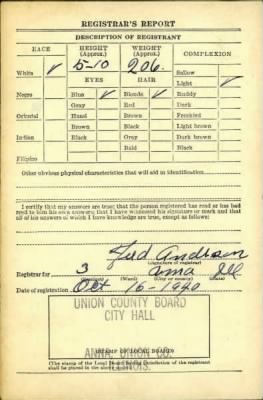 REGISTRAR'S REPORT
DESCRIPTION OF REGISTRANT
RACE HEIGHT (Approx.) WEIGHT (Approx.) COMPLEXION
White ✓ 5-10 206 Sallow
EYES HAIR Light ✓
Negro Blue ✓ Blonde ✓ Ruddy
Gray Red Dark
Oriental Hazel Brown Freckled
Brown Black Light brown
Indian Black Gray Dark brown
Bald Black
Filipino
Other obvious physical characteristics that will aid in identification
I certify that my answers are true; that the person registered has read or has had
read to him his own answers; that I have witnessed his signature or mark and that
all of his answers of which I have knowledge are true, except as follows:
Anderson
(Signature of registrar)
Registrar for 3 Anna Ill
(Precinct) (Ward) (City or county) (State)
Date of registration Oct 16-1940
UNION COUNTY BOARD
CITY HALL
ANNA, UNION CO.
ILLINOIS.
(STAMP OF LOCAL BOARD)
(The stamp of the Local Board having jurisdiction of the registrant
shall be placed in the above space.)